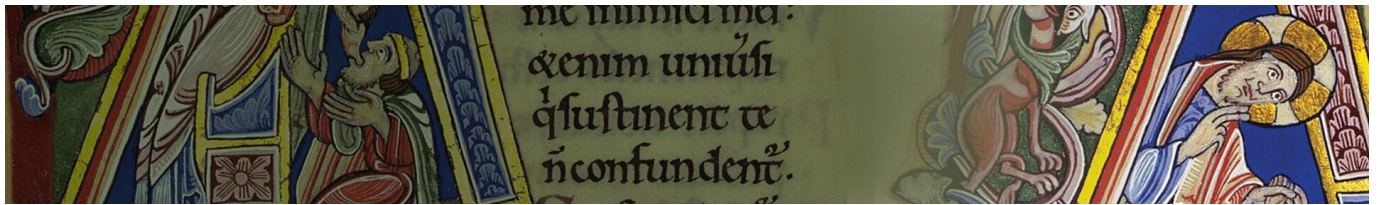 me inimici mei:
&enim uniu̓si
qͥ sustinent te
n̄ confundent᷑.